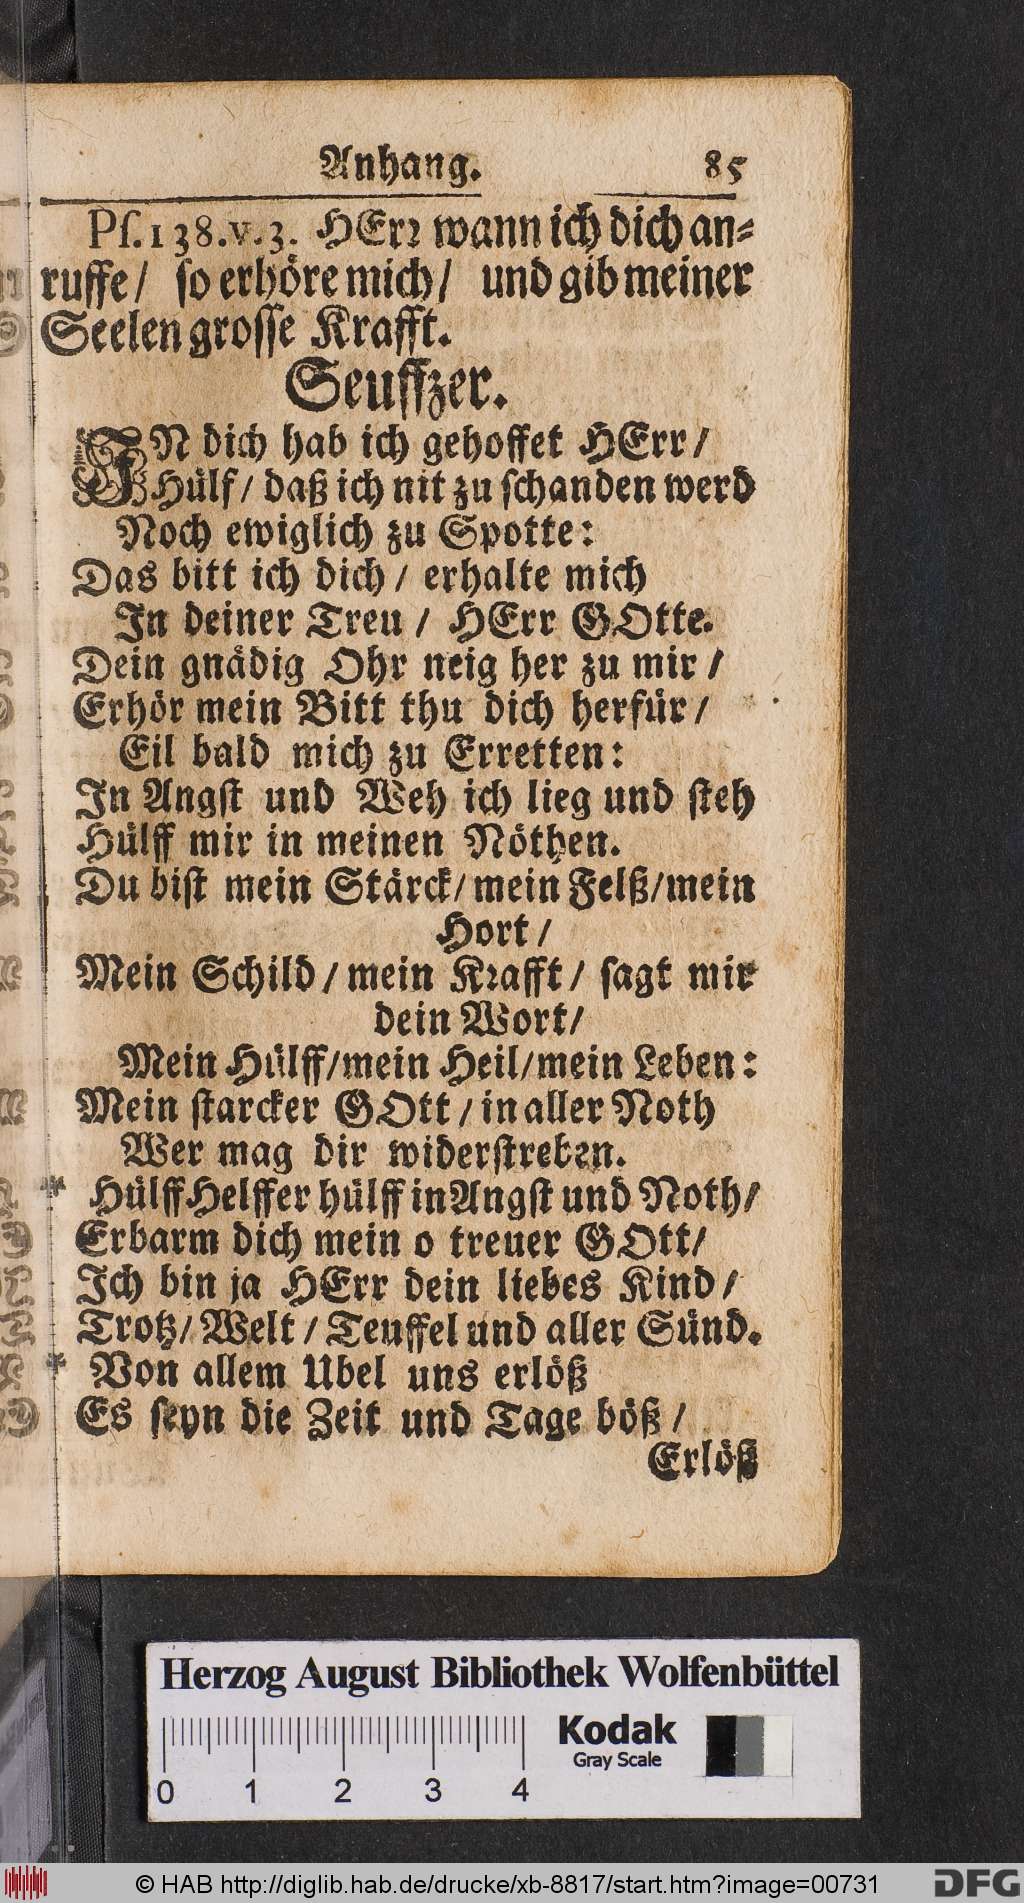 Anhang. 85
Ps. 138. v. 3. HErr wann ich dich an-
ruffe/ so erhöre mich/ und gib meiner
Seelen grosse Krafft.
Seuffzer.
IN dich hab ich gehoffet HErr/
Hülf/ daß ich nit zu schanden werd
Noch ewiglich zu Spotte:
Das bitt ich dich/ erhalte mich
In deiner Treu/ HErr GOtte.
Dein gnädig Ohr neig her zu mir/
Erhör mein Bitt thu dich herfür/
Eil bald mich zu Erretten:
In Angst und Weh ich lieg und steh
Hülff mir in meinen Nöthen.
Du bist mein Stärck/ mein Felß/ mein
Hort/
Mein Schild/ mein Krafft/ sagt mir
dein Wort/
Mein Hülff/ mein Heil/ mein Leben:
Mein starcker GOtt/ in aller Noth
Wer mag dir widerstreben.
* Hülff Helffer hülff in Angst und Noth/
Erbarm dich mein o treuer GOtt/
Ich bin ja HErr dein liebes Kind/
Trotz/ Welt/ Teuffel und aller Sünd.
* Von allem Ubel uns erlöß
Es seyn die Zeit und Tage böß/
Erlöß
Herzog August Bibliothek Wolfenbüttel
Kodak
Gray Scale
0 1 2 3 4
© HAB http://diglib.hab.de/drucke/xb-8817/start.htm?image=00731
DFG